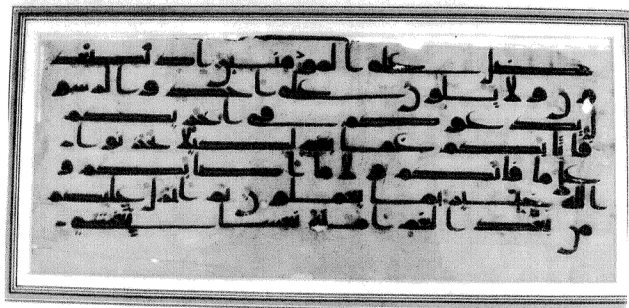 فضل على المومنين اذ تصعد
ون ولا تلون على احد والرسو
ل يدعوكم في اخريكم
فاثبكم غما بغم لكيلا تحزنوا
على ما فاتكم ولا ما اصبكم و
الله خبير بما تعملون ثم انزل عليكم
من بعد الغم امنة نعاسا يغشى